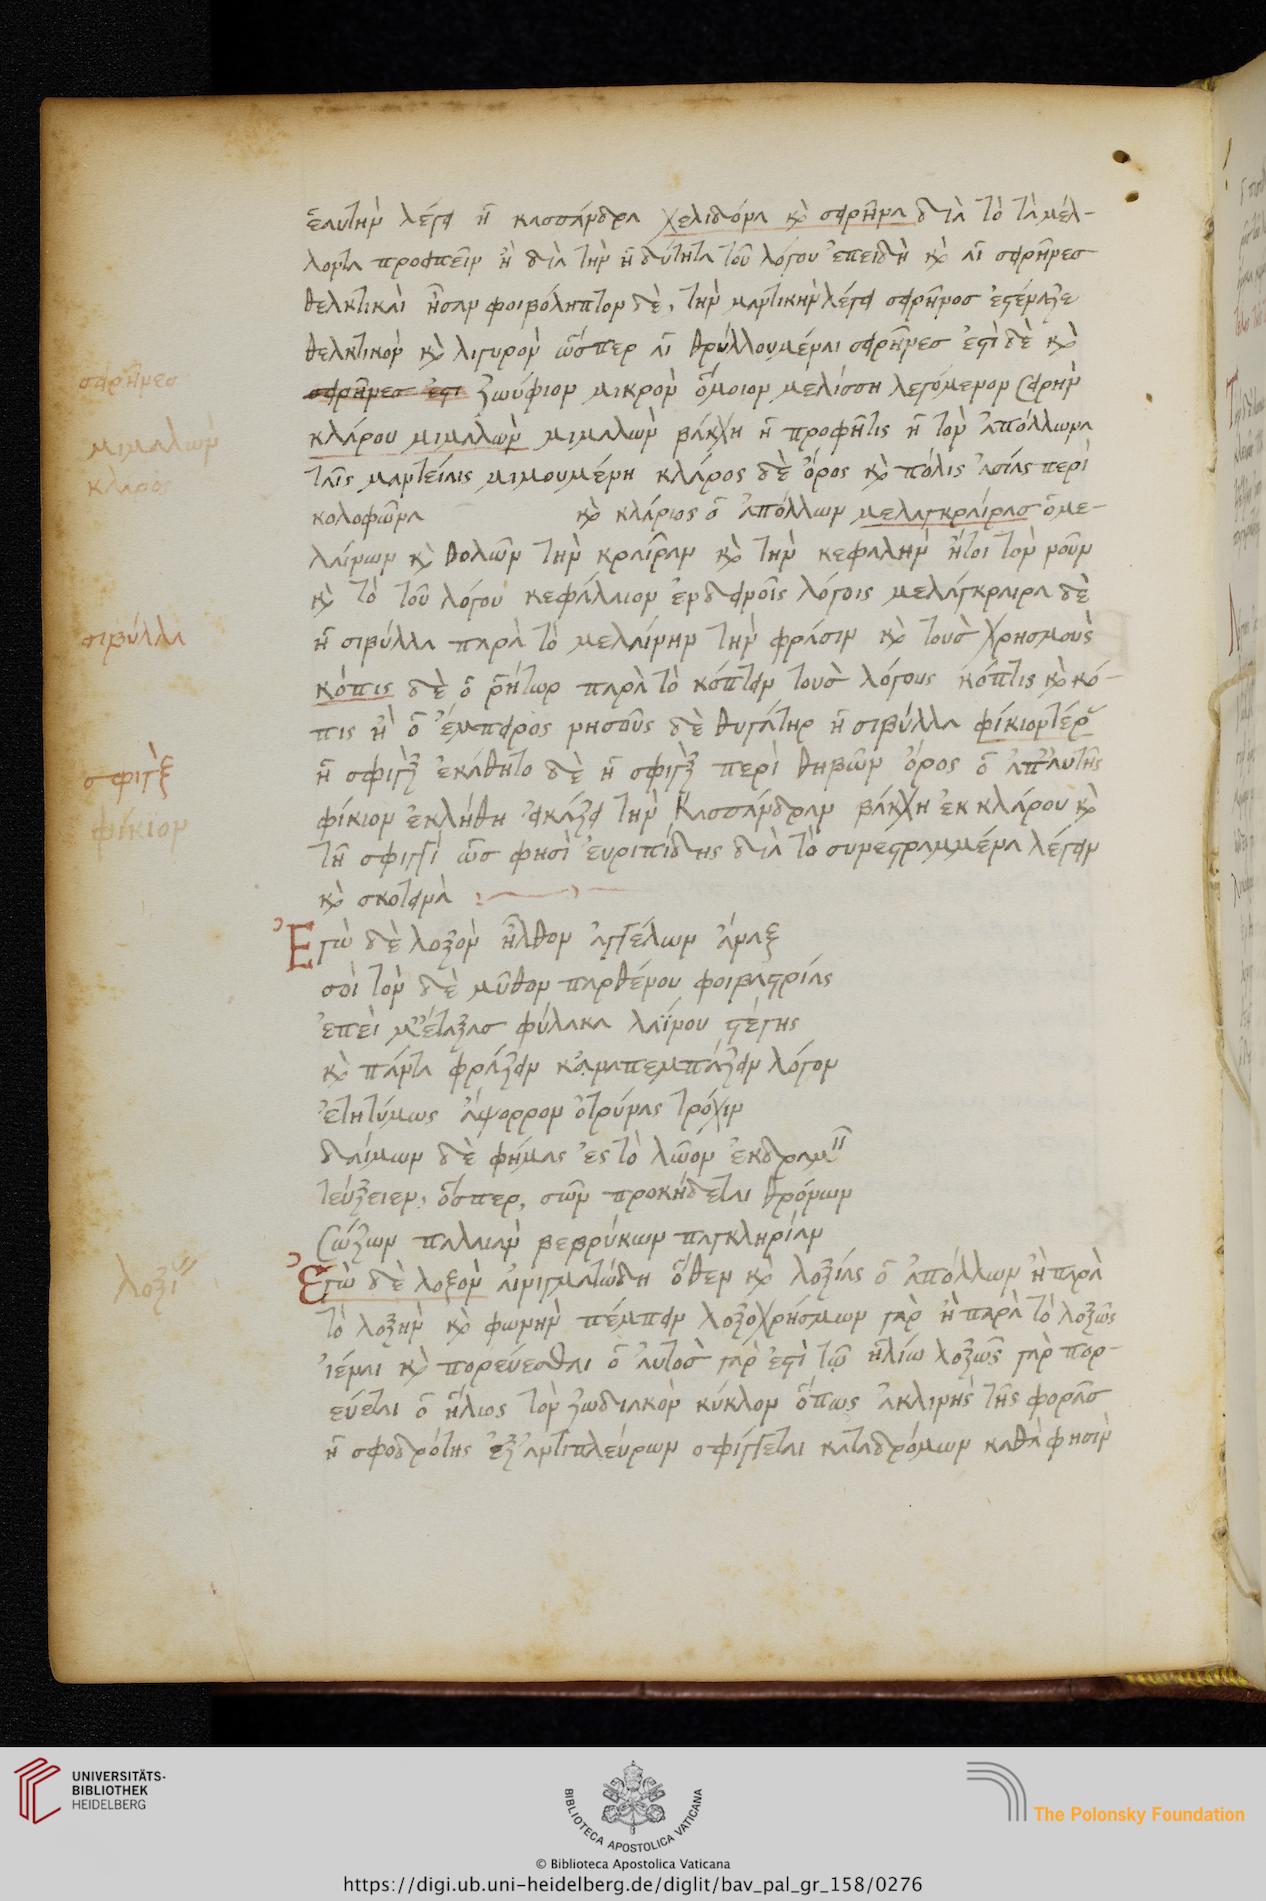 ἑαυτὴν λέγει ἡ κασσάνδρα χελιδόνα κὶ σειρῆνα διὰ τὸ τὰ μέλ-
λοντα προειπεῖν ἢ διὰ τὴν ἡδύτητα τοῦ λόγου ἐπειδὴ κὶ αἱ σειρῆνες
θελκτικαὶ ἦσαν φοιβόληπτον δὲ, τὴν μαντικὴν λέγει σειρῆνος ἐστέναξε
θελκτικὸν κὶ λιγυρὸν ὥσπερ αἱ θρυλλουμέναι σειρῆνες ἐστὶ δὲ κὶ
σειρῆνες
σειρῆνες ἐστι ζωύφιον μικρὸν ὅμοιον μελίσση λεγόμενον σειρὴν
μιμαλὼν
κλάρου μιμαλὼν μιμαλὼν βάκχη ἡ προφῆτις ἡ τὸν ἀπόλλωνα
κλάρος
ταῖς μαντείαις μιμουμένη κλάρος δὲ ὄρος κὶ πόλις ἀσίας περὶ
κολοφῶνα κὶ κλάριος ὁ ἀπόλλων μελαγκραίρας ὁ με-
λαίνων κὶ θολῶν τὴν κραῖραν κὶ τὴν κεφαλὴν ἤτοι τὸν νοῦν
κὶ τὸ τοῦ λόγου κεφάλαιον ἐν δεινοῖς λόγοις μελάγκραιρα δὲ
σιβύλλα
ἡ σιβύλλα παρὰ τὸ μελαίνην τὴν φράσιν κὶ τοὺς χρησμοὺς
κόπις δὲ ὁ ῥήτωρ παρὰ τὸ κόπτειν τοὺς λόγους κόπτις κὶ κό-
πις ἢ ὁ ἔμπειρος νησοῦς δὲ θυγάτηρ ἡ σιβύλλα φίκιον τέρ
σφιγξ
ἡ σφιγξ ἐκάθητο δὲ ἡ σφιγξ περὶ θηβῶν ὄρος ὃ ἀπ' αὐτῆς
φίκιον
φίκιον ἐκλήθη εἰκάζει τὴν Κασσάνδραν βάκχη ἐκ κλάρου κὶ
τῆ σφιγγὶ ὥς φησὶ εὐριπίδης διὰ τὸ συνεστραμμένα λέγειν
κὶ σκοτεινὰ
Ἐγὼ δὲ λοξὸν ἦλθον ἀγγέλων ἄναξ
σοὶ τὸν δὲ μῦθον παρθένου φοιβαστρίας
ἐπεὶ μ' ἔταξας φύλακα λαΐνου στέγης
κὶ πάντα φράζειν κἀναπεμπάζειν λόγον
ἐτητύμως ἄψορρον ὀτρύνας τρόχιν
δαίμων δὲ φήμας ἐς τὸ λῶον ἐκδραμ
τεύξειεν, ὅσπερ, σῶν προκήδεται θρόνων
σώζων παλαιὰν βεβρύκων παγκληρίαν
λοξί
Ἐγὼ δὲ λοξὸν αἰνιγματώδη ὅθεν κὶ λοξίας ὁ ἀπόλλων ἢ παρὰ
τὸ λοξὴν κὶ φωνὴν πέμπειν λοξοχρήσμων γὰρ ἢ παρὰ τὸ λοξῶς
ἰέναι κὶ πορεύεσθαι ὁ αὐτὸς γὰρ ἐστὶ τῷ ἡλίω λοξῶς γὰρ πορ-
εύεται ὁ ἥλιος τὸν ζωδιακὸν κύκλον ὅπως ἀκλινὴς τῆς φορᾶς
ἡ σφοδρότης ἐξ ἀντιπλεύρων σφίγγεται καταδρόμων καθά φησιν
UNIVERSITÄTS-
BIBLIOTHEK
HEIDELBERG
BIBLIOTECA APOSTOLICA VATICANA
The Polonsky Foundation
© Biblioteca Apostolica Vaticana
https://digi.ub.uni-heidelberg.de/diglit/bav_pal_gr_158/0276